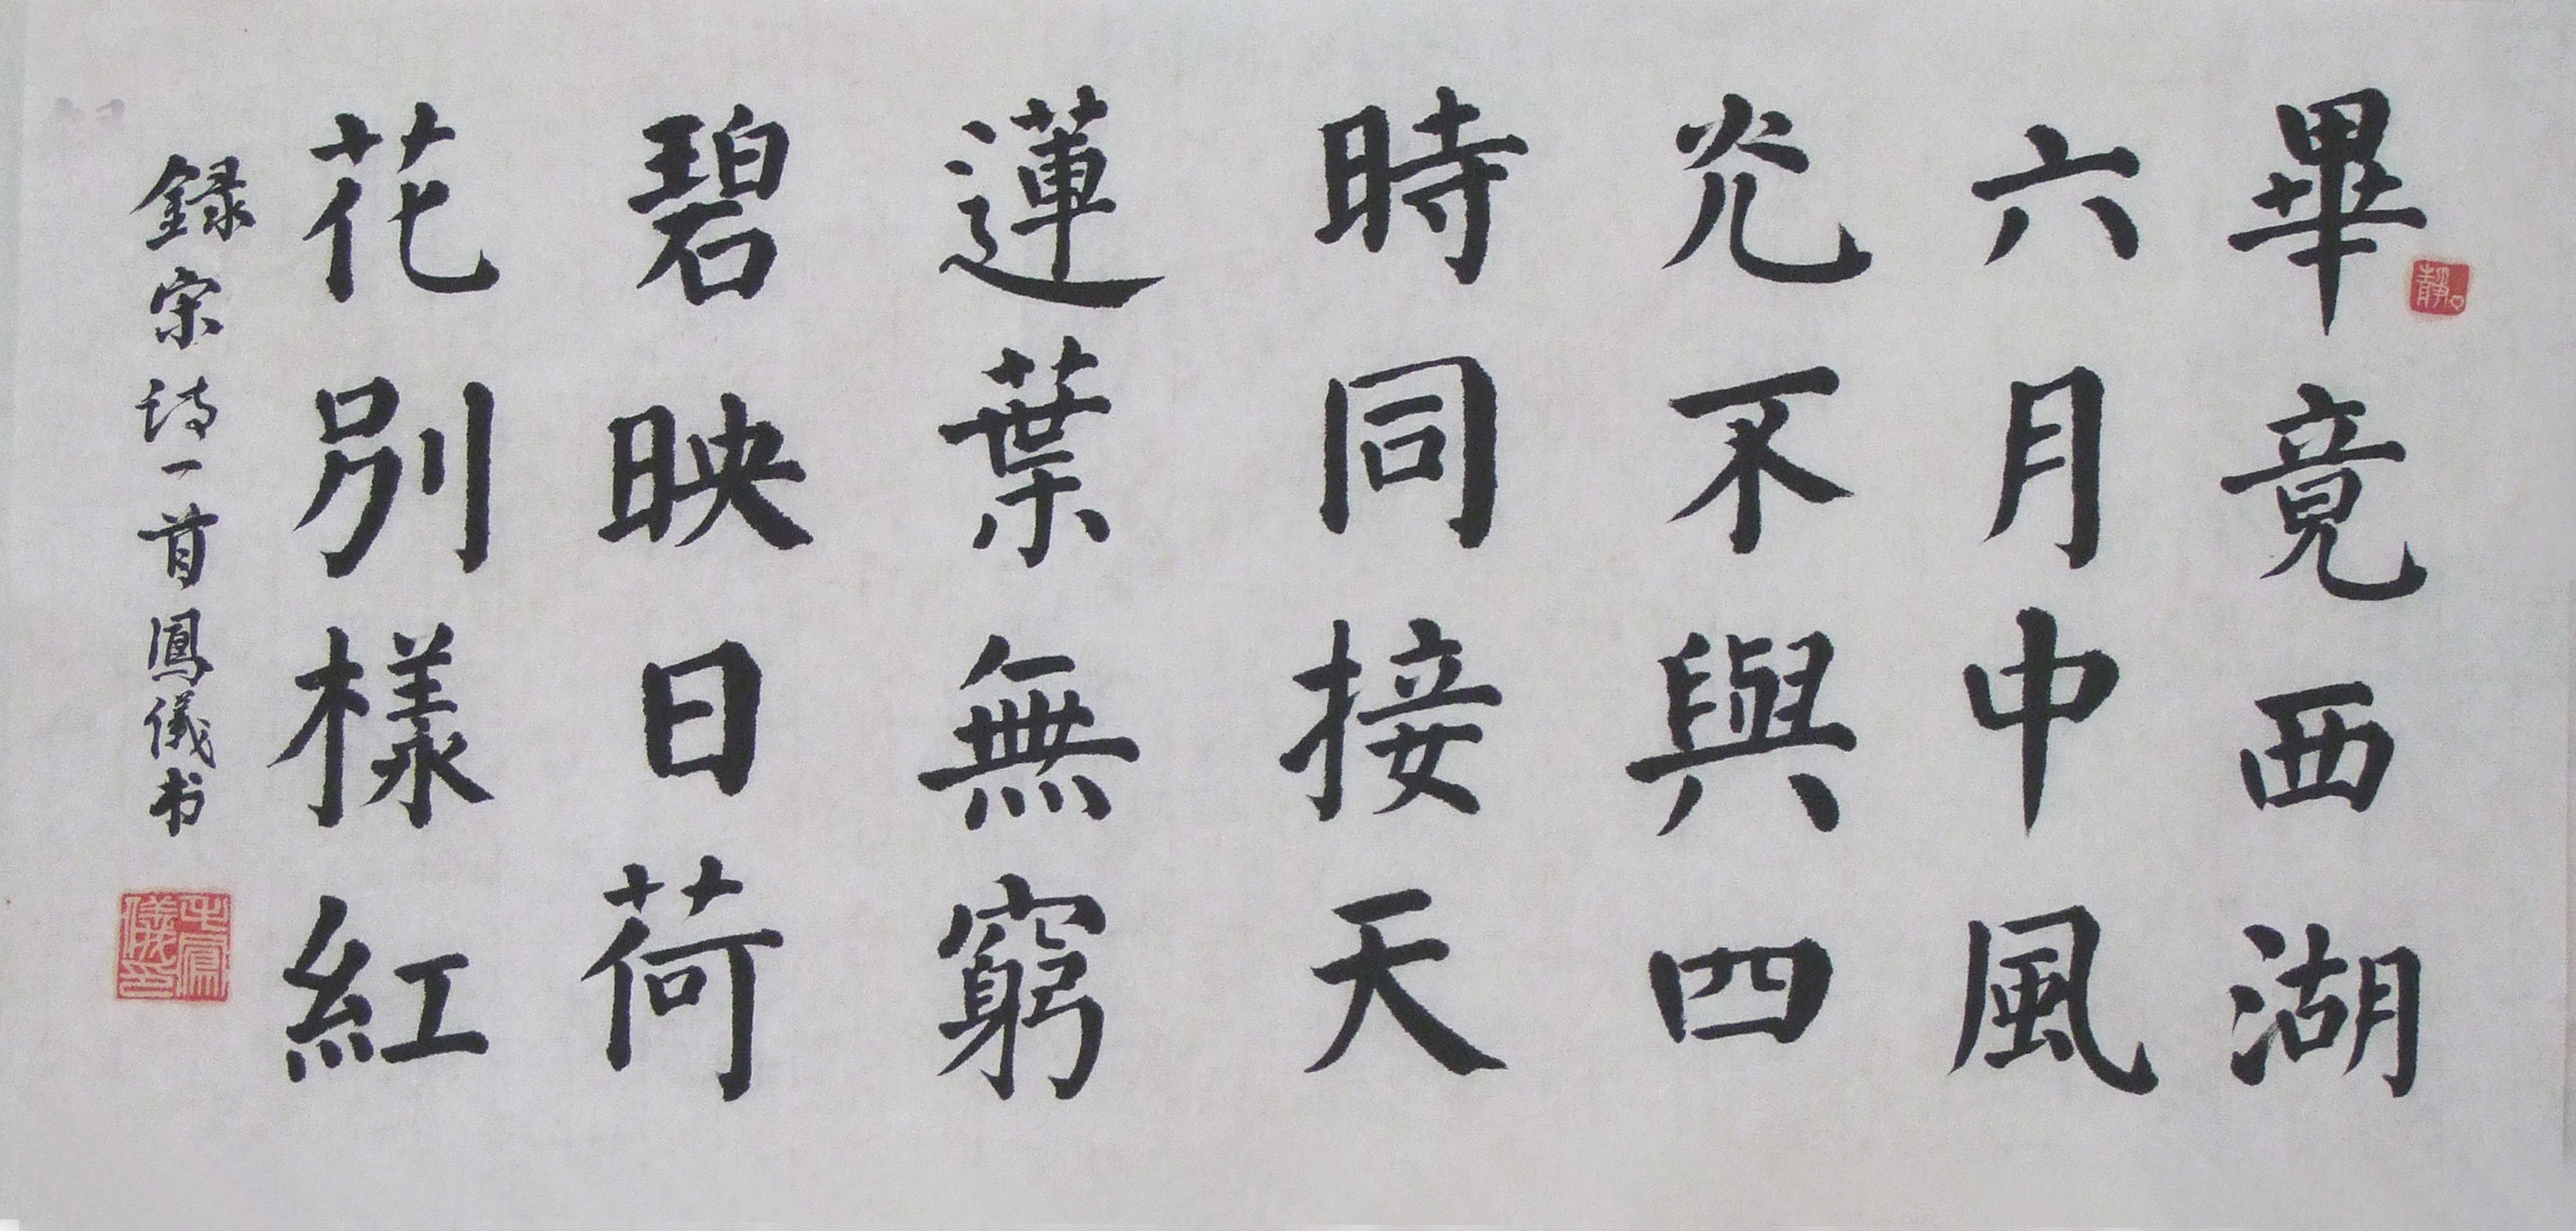 畢竟西湖
六月中風
光不與四
時同接天
蓮葉無窮
碧映日荷
花別樣紅
録宋詩一首鳳儀书
靜心